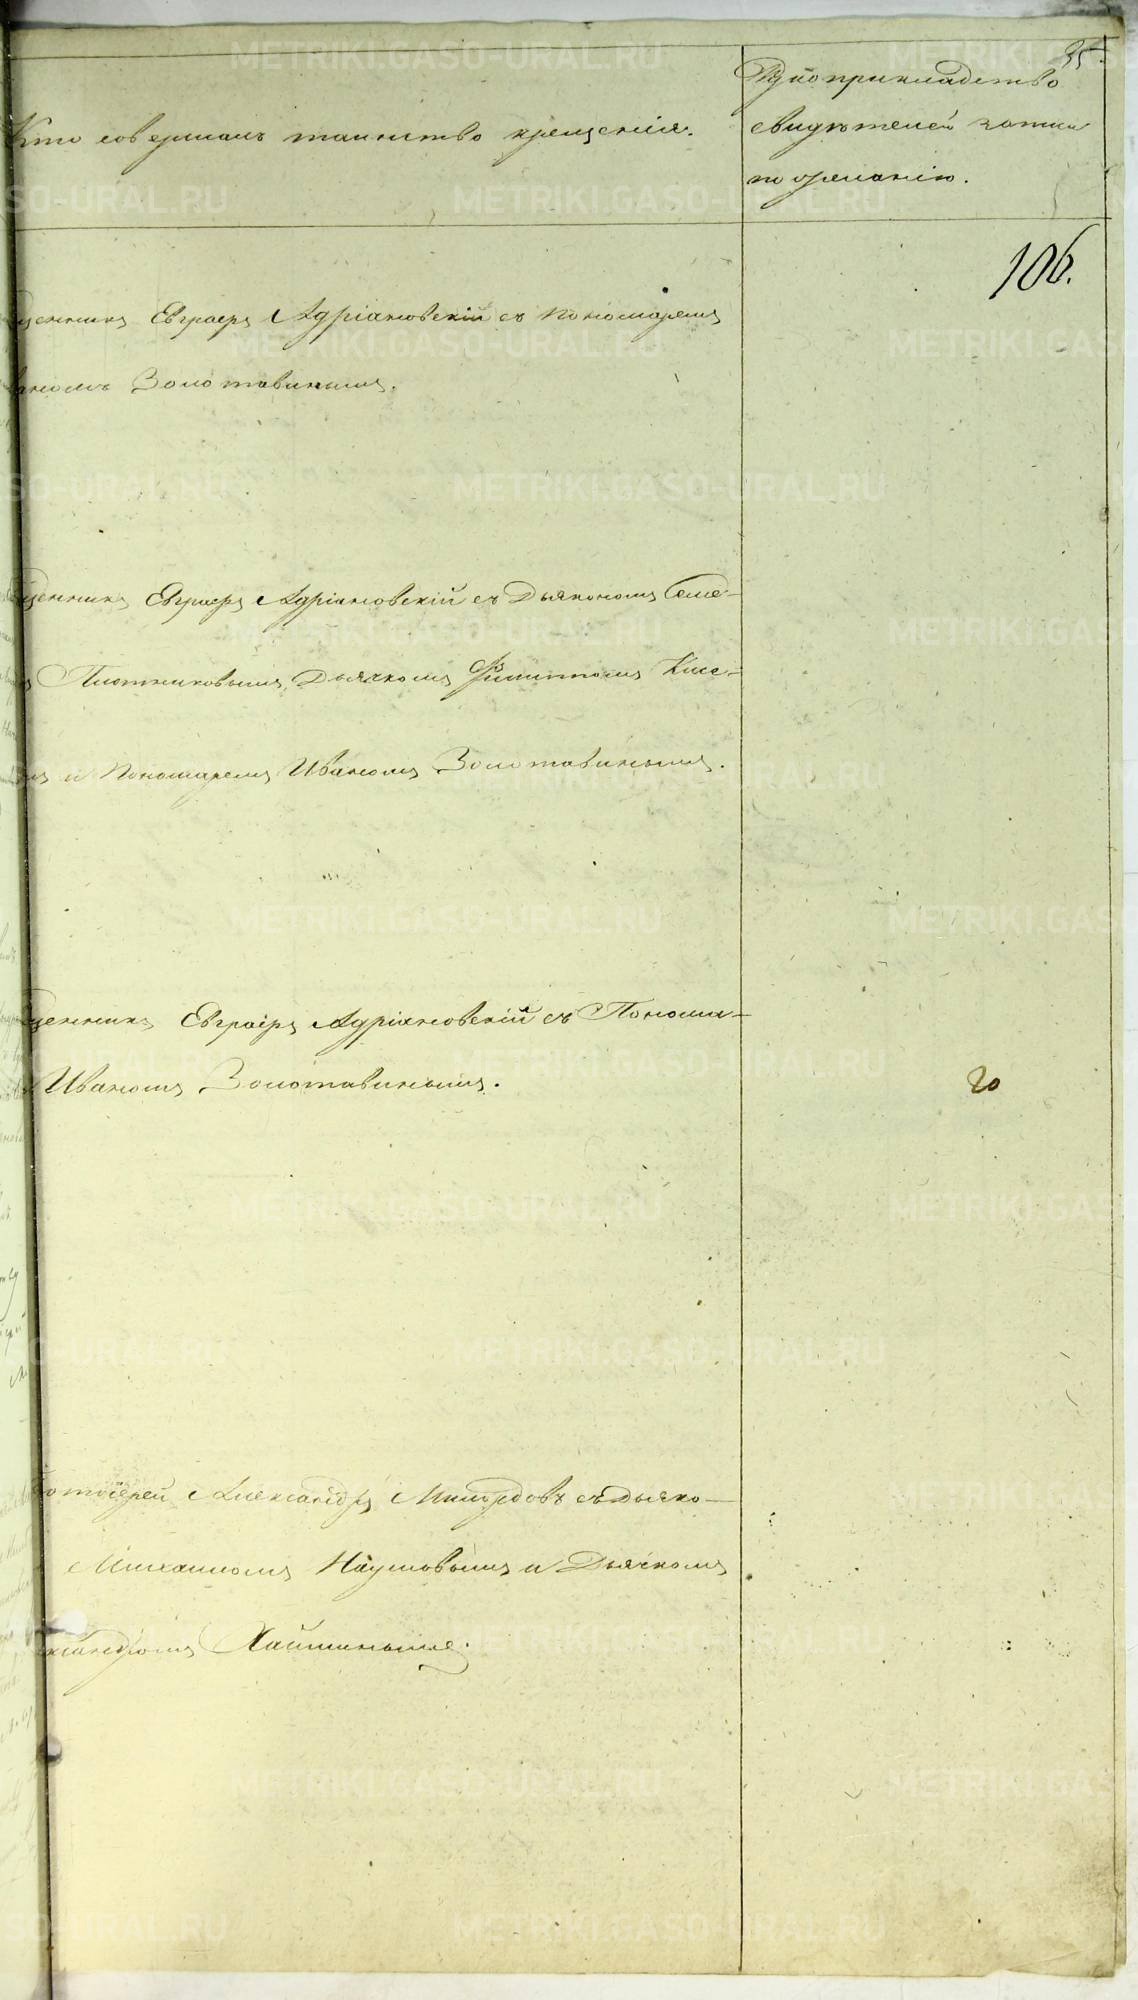 35.
Кто совершалъ таинство крещенія.
Рукоприкладство
свидѣтелей записи
по желанію.
106.
щенникъ Евграфъ Адріановскій съ пономаремъ
ваномъ Золотавинымъ.
щенникъ Евграфъ Адріановскій съ Дьякономъ Семе-
Плотниковымъ, Дьячкомъ Филиппомъ Кисе-
и Пономаремъ Иваномъ Золотавинымъ.
щенникъ Евграфъ Адріановскій съ Понома-
Иваномъ Золотавинымъ.
20
отоіерей Александръ Милордовъ съ Дьяко-
Михаиломъ Наумовымъ и Дьячкомъ
ксандромъ Хайминымъ.
METRIKI.GASO-URAL.RU